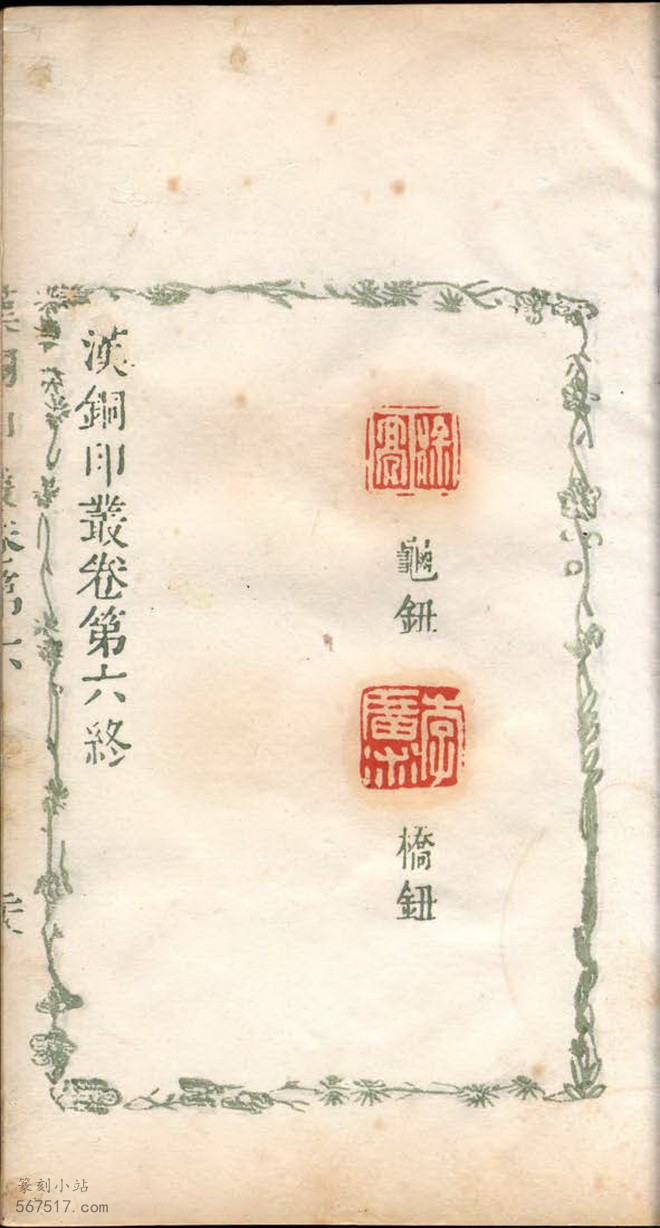 龜鈕
橋鈕
漢銅印叢卷第六終
篆刻小站
567517.com